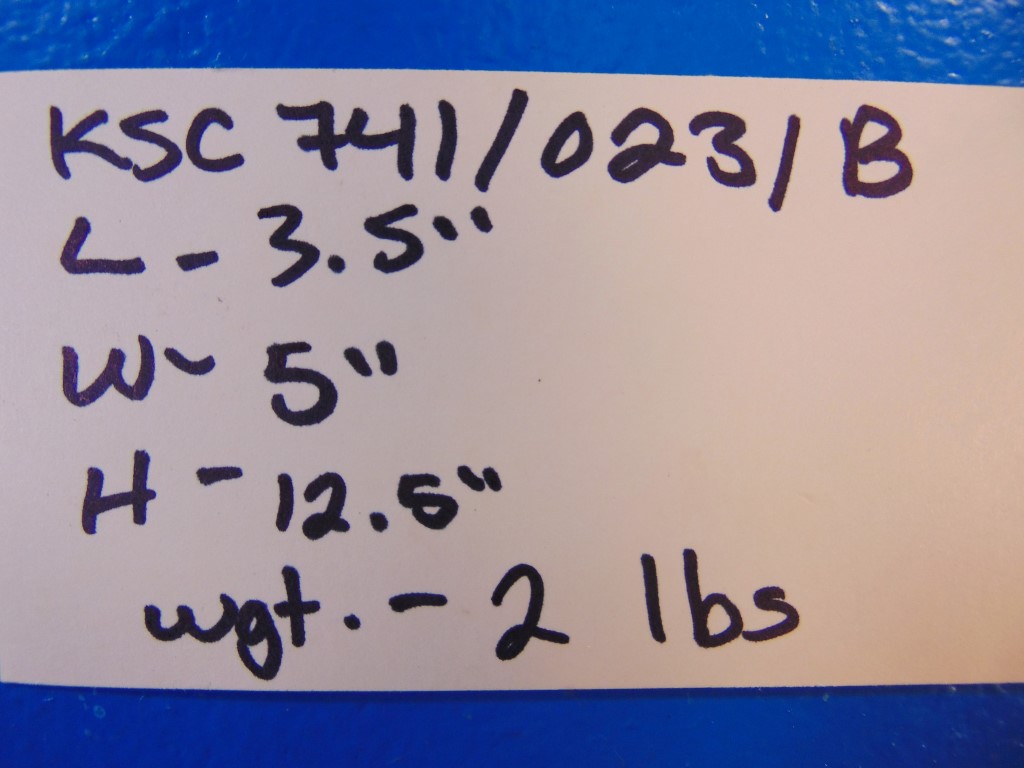 KSC 741/023/B
L - 3.5"
W - 5"
H - 12.5"
wgt. - 2 lbs